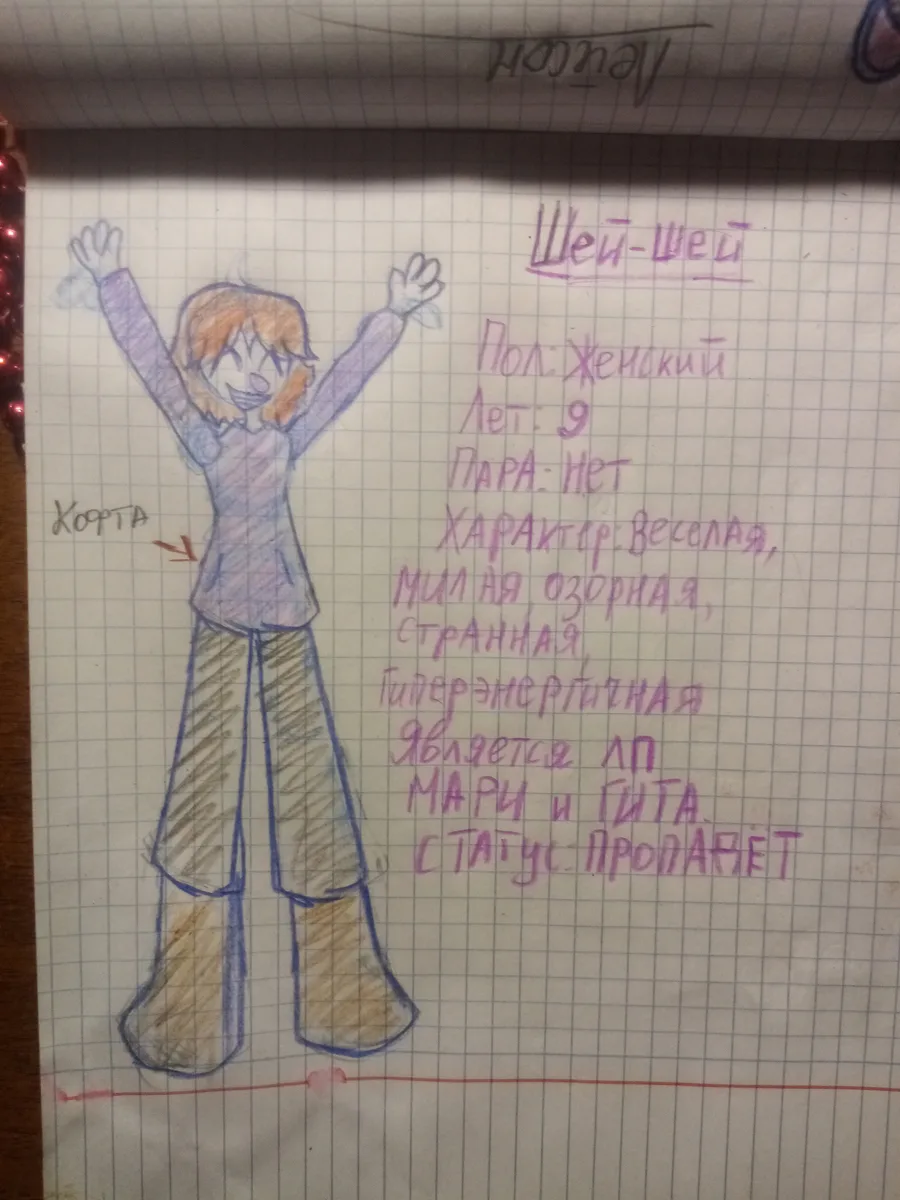 Лейсон
Шей-шей
Пол: Женский
Лет: 9
ПАРА: Нет
ХАРАктер: Веселая,
МИЛАЯ, озорная,
СТРАННАЯ,
Гиперэнергичная
Является ЛП
МАРИ и ГИТА.
СТАТУС: ПРОПАДЁТ
Кофта